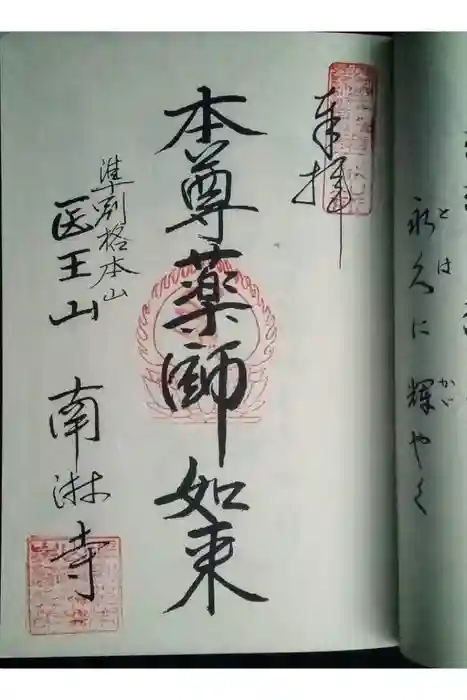 永久に輝やく
とは
かゞ
奉拝
本尊薬師如来
準別格本山
医王山 南淋寺